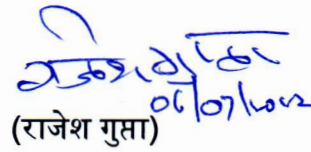 राजेश गुप्ता
06/07/2002
(राजेश गुप्ता)